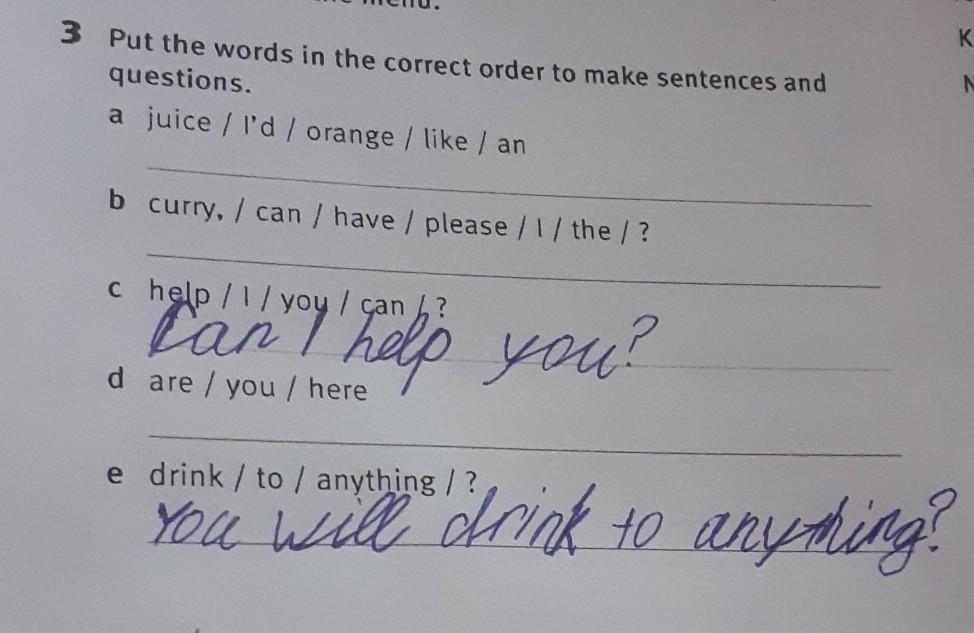 3 Put the words in the correct order to make sentences and
questions.
a juice / I'd / orange / like / an
b curry, / can / have / please / I / the / ?
c help / I / you / can / ?
Can I help you?
d are / you / here
e drink / to / anything / ?
You will drink to anything?